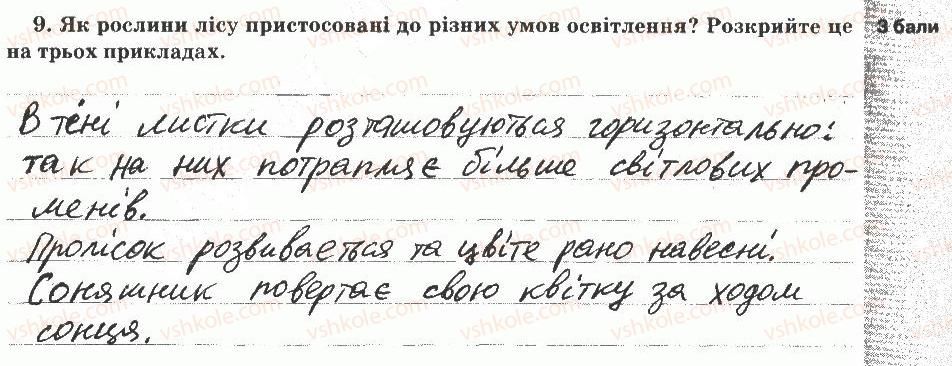 9. Як рослини лісу пристосовані до різних умов освітлення? Розкрийте це
на трьох прикладах.
3 бали
В тені листки розташовуються горизонтально:
так на них потрапляє більше світлових про-
менів.
Пролісок розвивається та цвіте рано навесні.
Соняшник повертає свою квітку за ходом
сонця.
vshkole.com